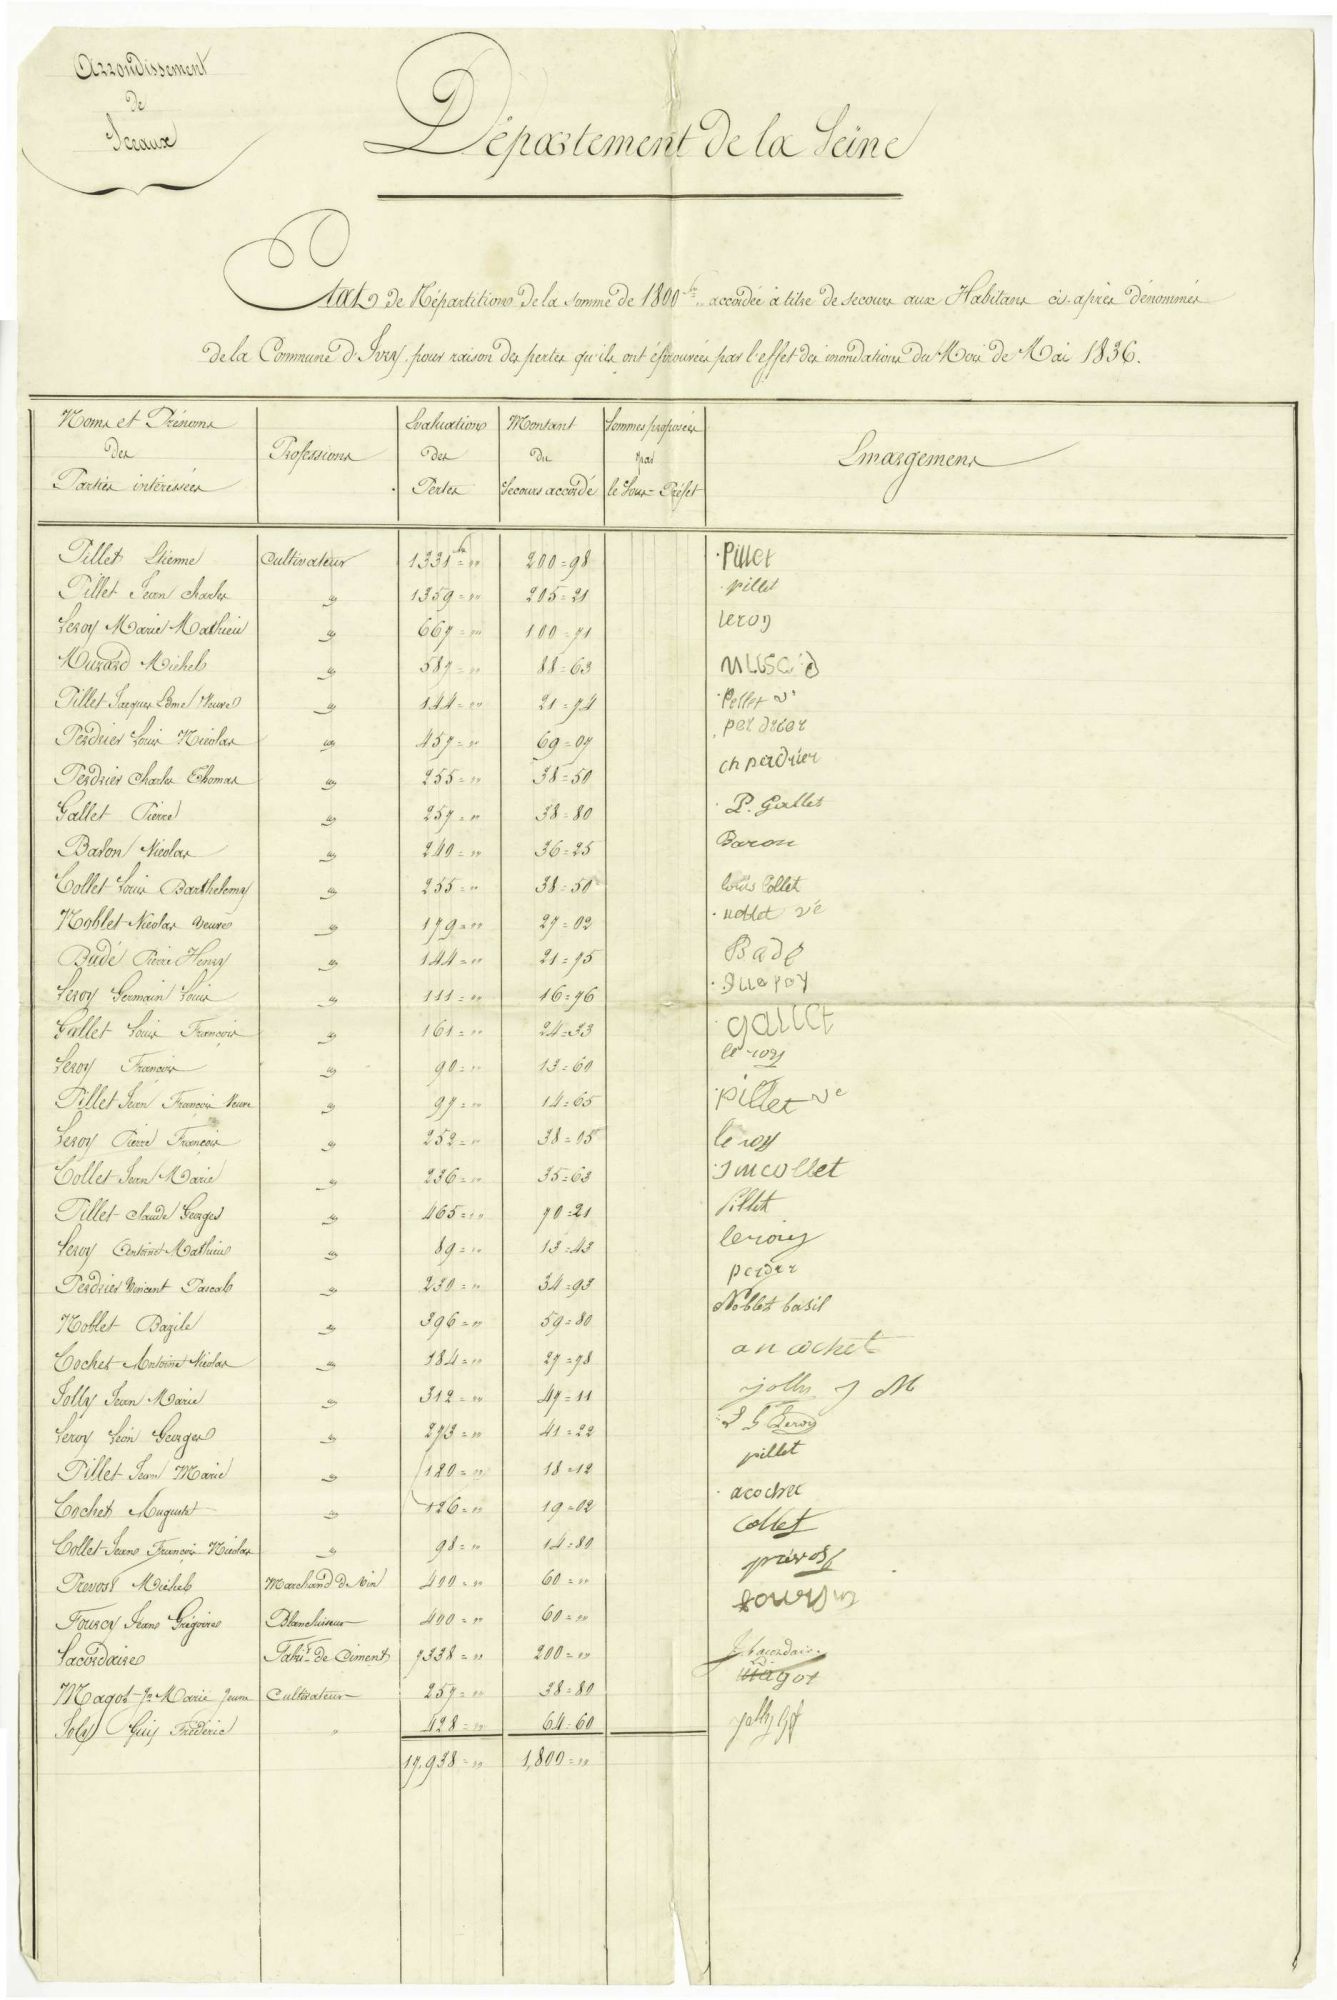 Arrondissement
de
Sceaux
Département de la Seine
Etat de Répartition de la somme de 1800 fr accordée à titre de secours aux Habitans ci-après dénommés
de la Commune d'Ivry, pour raison des pertes qu'ils ont éprouvées par l'effet des inondations du Mois de Mai 1836.
Noms et Prénoms des Parties intéressées | Professions | Evaluation des Pertes | Montant du Secours accordé | Sommes proposées par le Sous-Préfet | Emargemens
Pillet Etienne Cultivateur 1331 fr = " 200=98 Pillet
Pillet Jean Charles " 1359=" 205=21 pillet
Leroy Marie Mathieu " 667=" 100=71 leroy
Musard Michel " 587=" 88=63
Pillet Jacques Veuve " 144=" 21=74 Pellet ve
Perdrier Louis Nicolas " 457=" 69=07 perdrier
Perdrier Charles Thomas " 255=" 38=50 ch perdrier
Gallet Pierre " 257=" 38=80 P. Gallet
Baron Nicolas " 240=" 36=25 Baron
Collet Louis Barthelemy " 255=" 38=50 louis Collet
Noblet Nicolas Veuve " 179=" 27=02 noblet ve
Budé Pierre Henry " 144=" 21=75
Leroy Germain Louis " 111=" 16=76
Gallet Louis François " 161=" 24=33 gallet
Leroy François " 90=" 13=60 le roy
Pillet Jean François Veuve " 97=" 14=65 pillet ve
Leroy Pierre François " 252=" 38=05 le roy
Collet Jean Marie " 236=" 35=63 jmcollet
Pillet Claude Georges " 465=" 70=21 pillet
Leroy Antoine Mathieu " 89=" 13=43 leroiy
Perdrier Vincent Pascal " 230=" 34=93
Noblet Bazile " 396=" 59=80 Noblet basil
Cochet Antoine Nicolas " 184=" 27=78 an cochet
Jolly Jean Marie " 312=" 47=11 jolly j M
Leroy Léon Georges " 273=" 41=22 L G Leroy
Pillet Jean Marie " 120=" 18=12 pillet
Cochet Auguste " 126=" 19=02
Collet Jean François Nicolas " 98=" 14=80 Collet
Prevost Michel Marchand de Vin 400=" 60=" prévost
Fourcy Jean Grégoire Blanchisseur 400=" 60="
Lacordaire Fabt de Ciment 7338=" 200=" Lacordaire
Magot Jn Marie Jeune Cultivateur 257=" 38=80 magot
Joly Guy Fréderic " 428=" 64=60 jolly gf
17,938=" 1,800="